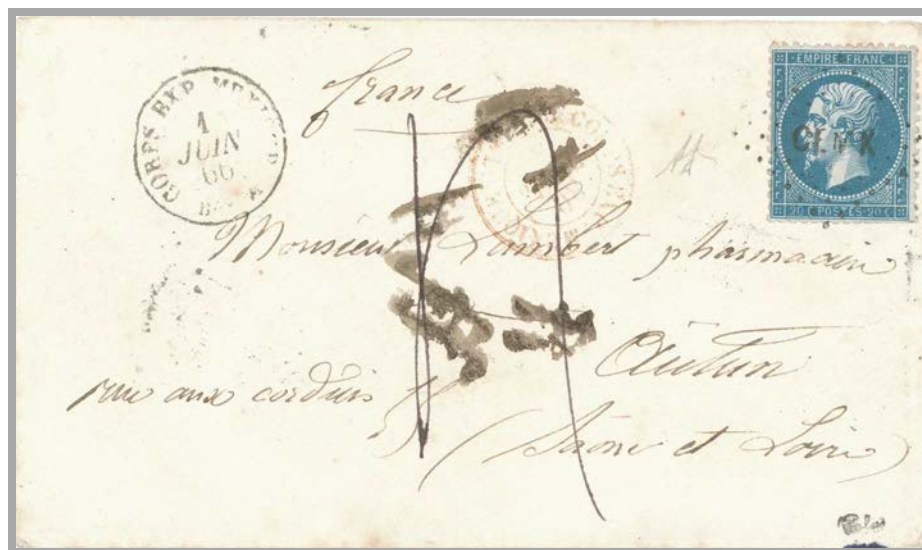 CORPS EXP. MEXIQUE
1
JUIN
66
EMPIRE FRANC
CEMK
20 C POSTES 20 C
France
Monsieur Lambert pharmacien
Autun
rue aux cordiers
(Saone et Loire)